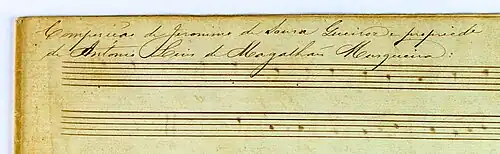 Composição de Jeronimo de Souza Queiroz e propried.e
de Antonio Luis de Magalhães Mosqueira: